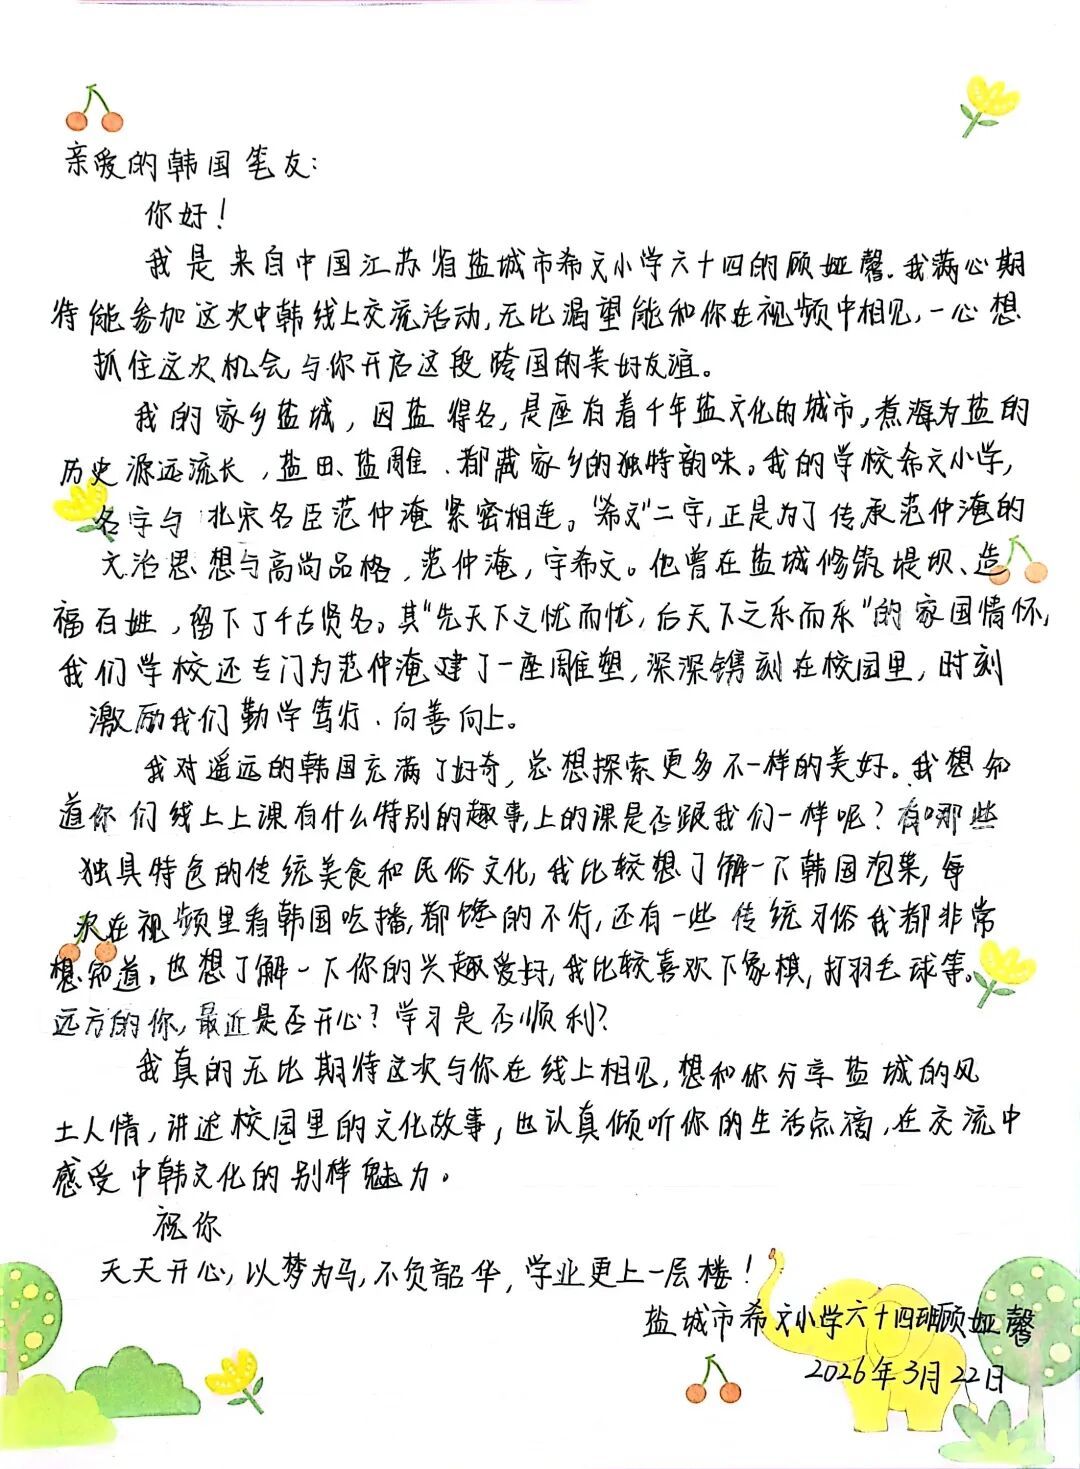 亲爱的韩国笔友：
你好！
我是来自中国江苏省盐城市希文小学六十四的顾娅馨．我满心期
待能参加这次中韩线上交流活动，无比渴望能和你在视频中相见，一心想
抓住这次机会与你开启这段跨国的美好友谊。
我的家乡盐城，因盐得名，是座有着千年盐文化的城市，煮海为盐的
历史源远流长，盐田、盐雕、都藏家乡的独特韵味。我的学校希文小学，
名字与北宋名臣范仲淹紧密相连。“希文”二字，正是为了传承范仲淹的
文治思想与高尚品格，范仲淹，字希文。他曾在盐城修筑堤坝、造
福百姓，留下了千古贤名。其“先天下之忧而忧，后天下之乐而乐”的家国情怀，
我们学校还专门为范仲淹建了一座雕塑，深深镌刻在校园里，时刻
激励我们勤学笃行、向善向上。
我对遥远的韩国充满了好奇，总想探索更多不一样的美好。我想知
道你们线上上课有什么特别的趣事，上的课是否跟我们一样呢？有哪些
独具特色的传统美食和民俗文化，我比较想了解一下韩国泡菜，每
次在视频里看韩国吃播，都馋的不行，还有一些传统习俗我都非常
想知道。也想了解一下你的兴趣爱好，我比较喜欢下象棋，打羽毛球等。
远方的你，最近是否开心？学习是否顺利？
我真的无比期待这次与你在线上相见，想和你分享盐城的风
土人情，讲述校园里的文化故事，也认真倾听你的生活点滴，在交流中
感受中韩文化的别样魅力。
祝你
天天开心，以梦为马，不负韶华，学业更上一层楼！
盐城市希文小学六十四班顾娅馨
2026年3月22日